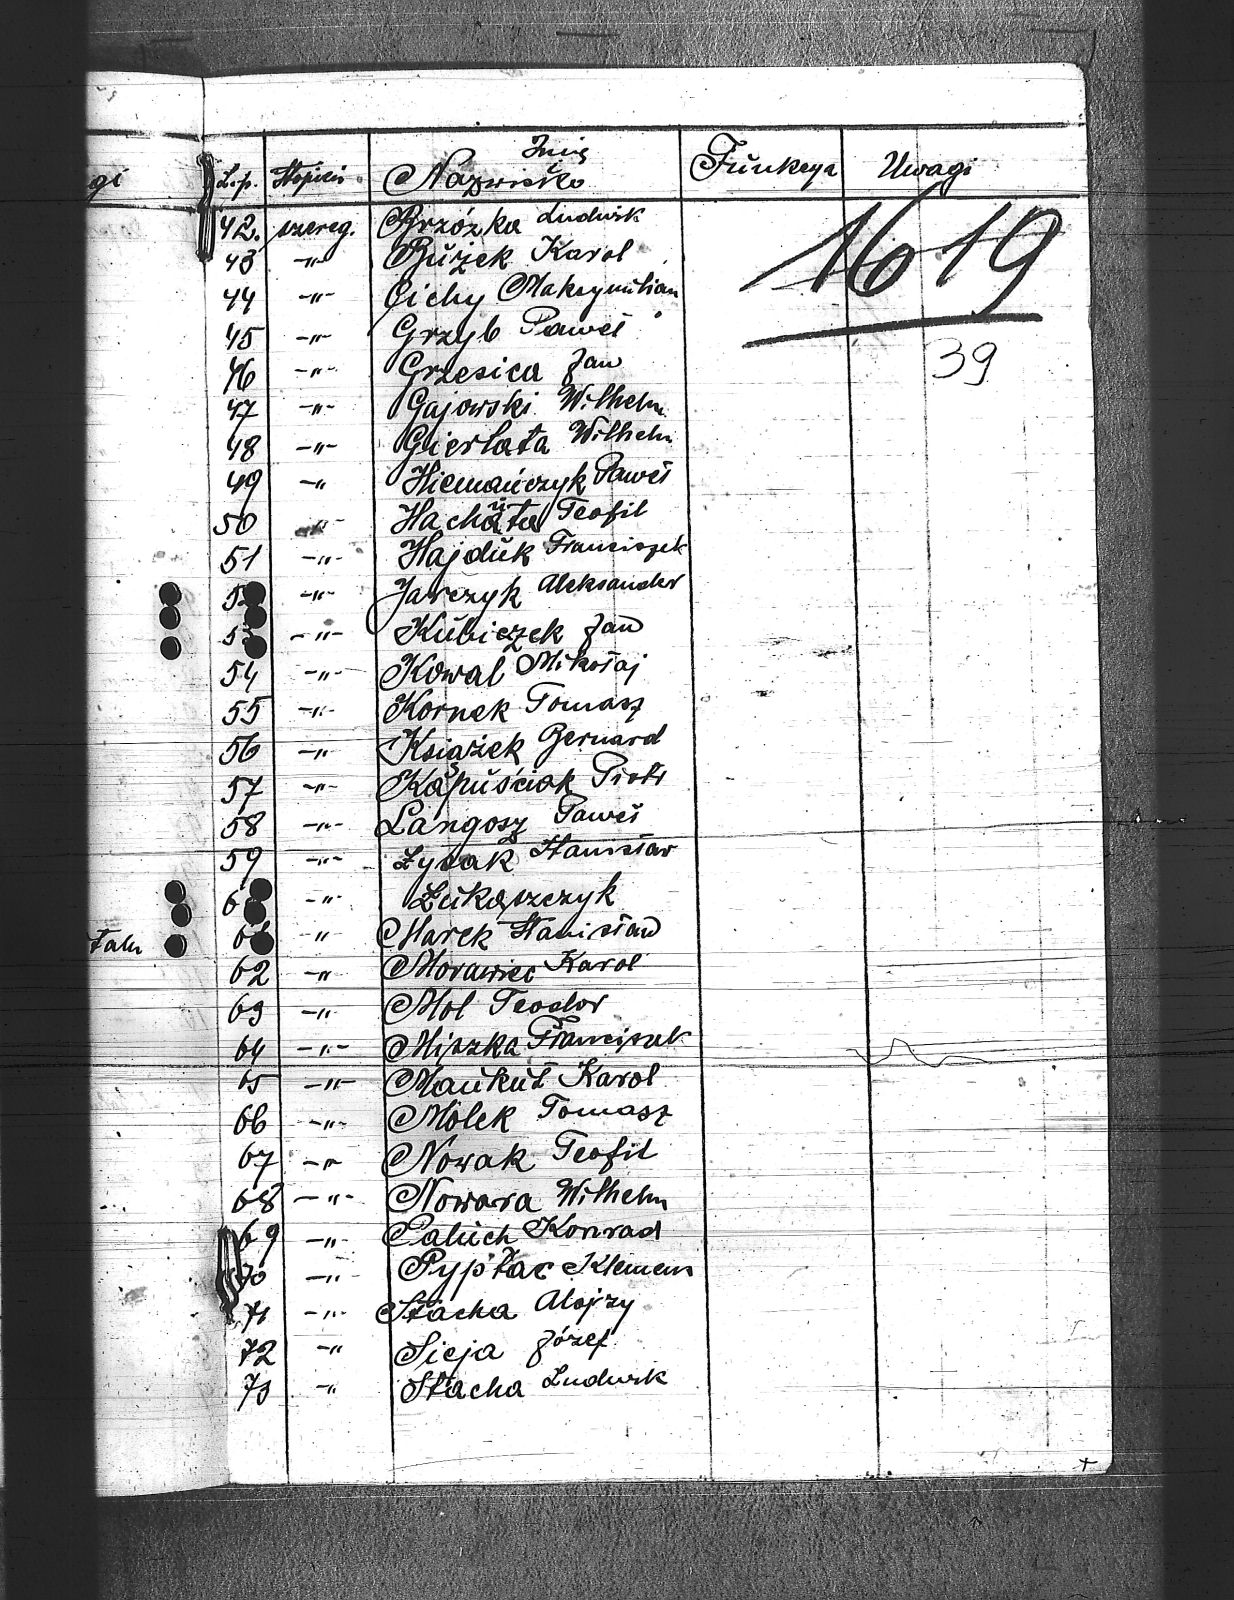 Imię
gi L.p. Stopień Nazwisko Funkcya Uwagi
42. szereg. Brzózka Ludwik
1619
43 -"- Bużek Karol
44 -"- Cichy Maksymilian
45 -"- Grzyb Paweł
39
46 -"- Grzesica Jan
47 -"- Gajowski Wilhelm
48 -"- Gierlata Wilhelm
49 -"- Hiemańczyk Paweł
50 -"- Teofil
51 -"- Hajduk Franciszek
-"- Jarczyk Aleksander
-"- Kubiczek Jan
54 -"- Kowal Mikołaj
55 -"- Kornek Tomasz
56 -"- Książek Bernard
57 -"- Kapuściok Piotr
58 -"- Langosz Paweł
59 -"- Łysak Stanisław
-"- Łukaszczyk
-"- Marek Stanisław
62 -"- Morawiec Karol
63 -"- Mol Teodor
64 -"- Miszka Franciszek
65 -"- Karol
66 -"- Molek Tomasz
67 -"- Nowak Teofil
68 -"- Nowara Wilhelm
69 -"- Paluch Konrad
70 -"- Klemens
71 -"- Stacha Alojzy
72 -"- Sieja Józef
73 -"- Stacha Ludwik